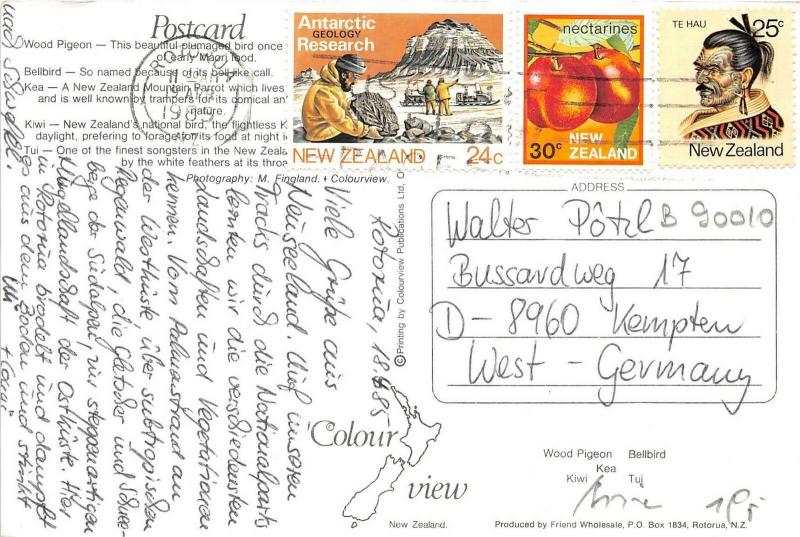 Postcard
Wood Pigeon — This beautiful plumaged bird once
of early Maori food.
Bellbird — So named because of its bell-like call.
Kea — A New Zealand Mountain Parrot which lives
and is well known by trampers for its comical an
nature.
Kiwi — New Zealand's national bird, the flightless K
daylight, prefering to forage for its food at night
Tui — One of the finest songsters in the New Zeala
by the white feathers at its thro
Photography: M. Fingland. Colourview.
Antarctic
GEOLOGY
Research
NEW ZEALAND 24c
nectarines
30c NEW
ZEALAND
TE HAU 25c
New Zealand
Rotorua, 18.4.85
Viele Grüße aus
Neuseeland. Auf unseren
Tracks durch die Nationalparks
lernten wir die verschiedensten
Landschaften und Vegetationen
kennen. Vom Palmenstrand an
der Westküste über subtropischen
Regenwald, die Gletscher und Schnee-
berge der Südalpen, zur steppenartigen
Hügellandschaft der Ostküste. Hier
in Rotorua brodelt und dampft
es aus dem Boden und stinkt
nach Schwefel!
Uli
© Printing by Colourview Publications Ltd,
ADDRESS
Walter Pötzl B 90010
Bussardweg 17
D-8960 Kempten
West-Germany
Colour
view
New Zealand.
Wood Pigeon Bellbird
Kea
Kiwi Tui
Produced by Friend Wholesale, P.O. Box 1834, Rotorua, N.Z.